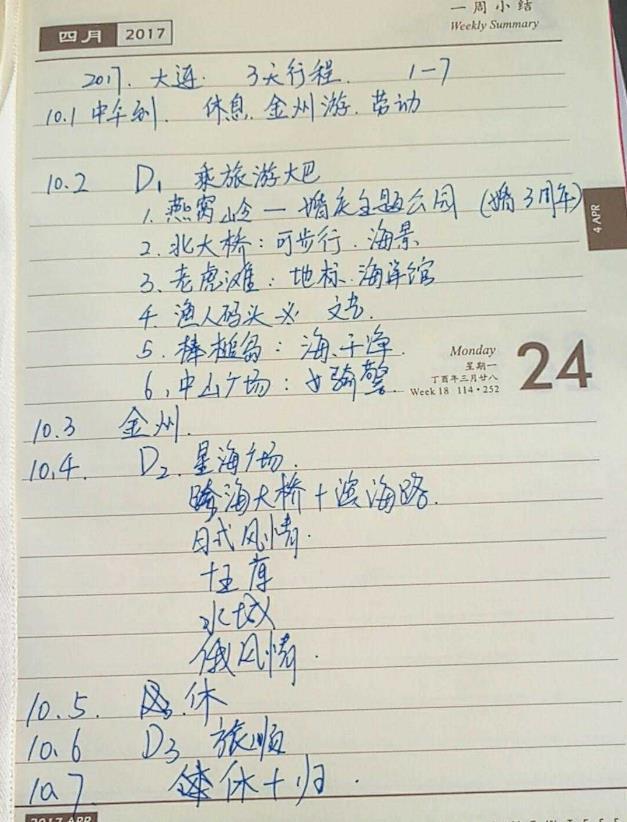 一周小结
Weekly Summary
四月 2017
2017. 大连. 3天行程. 1-7
10.1 中午到. 休息. 金州游. 劳动
10.2 D1 乘旅游大巴
1. 燕窝岭 — 婚庆主题公园 (婚3周年)
4 APR
2. 北大桥: 可步行. 海景
3. 老虎滩: 地标. 海洋馆
4. 渔人码头 文艺.
5. 棒槌岛: 海、干净.
6. 中山广场: 女骑警.
Monday
星期一
丁酉年三月廿八
Week 18 114·252
24
10.3 金州.
10.4. D2. 星海广场.
跨海大桥+滨海路.
日式风情.
十五库
水城
俄风情.
10.5. 休
10.6 D3 旅顺
10.7 休+归.
2017 APR